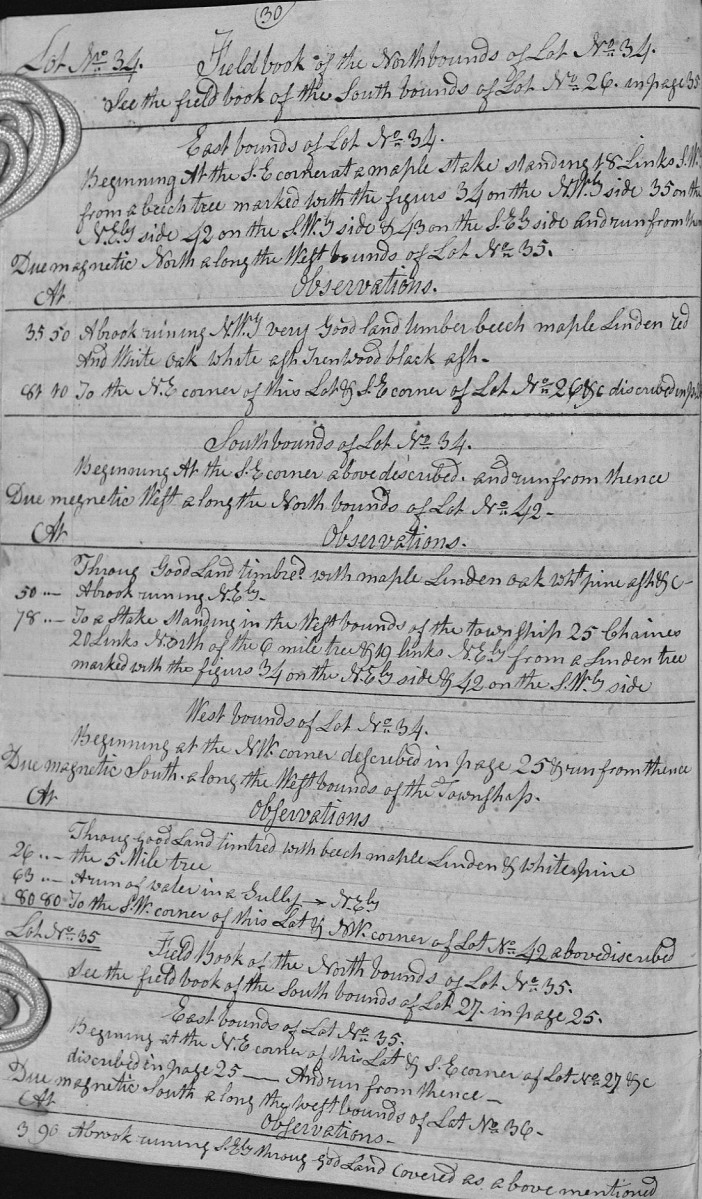 30
Lot No. 34. Field book of the North bounds of Lot No. 34.
See the field book of the South bounds of Lot No. 26. in page
East bounds of Lot No. 34.
Beginning At the S.E corner at a maple stake standing 18 Links S.W.
from a beech tree marked with the figurs 34 on the N.W.y side 35 on the
N.E.y side 42 on the S.W.y side & 43 on the S.E.y side and run from
Due magnetic North along the West bounds of Lot No. 35.
At Observations.
35 50 A brook runing N.W.y very Good land timber beech maple Linden red
And White oak white ash Irenwood black ash.
81 40 To the N.E corner of this Lot & S.E corner of Lot No. 26 &c discribed in
South bounds of Lot No. 34.
Beginning At the S.E corner above described. and run from thence
Due magnetic West along the North bounds of Lot No. 42.
At Observations.
Throug Good Land timbred with maple Linden Oak wht pine ash &c
50 .. A brook runing N.E.y.
78 .. To a Stake standing in the West bounds of the township 25 Chaines
20 Links North of the 6 mile tree & 19 links N.E.y from a Linden tree
marked with the figurs 34 on the N.E.y side & 42 on the S.W.y side
West bounds of Lot No. 34.
Beginning at the N.W. corner described in page 25 & run from thence
Due magnetic South. along the West bounds of the Township.
At Observations
Throug good Land timbred with beech maple Linden & white pine
26 .. the 5 Mile tree
63 .. A run of water in a Gully → N.E.y
80 80 To the S.W. corner of this Lot & N.W. corner of Lot No. 42 above discribed
Lot No. 35 Field Book of the North bounds of Lot No. 35.
See the field book of the South bounds of Lot 27. in page 25.
East bounds of Lot No. 35.
Begining at the N.E corner of this Lot & S.E corner of Lot No. 27 &c
discribed in page 25 — And run from thence —
Due magnetic South along the west bounds of Lot No. 36.
At Observations
3 90 A brook runing S.E.y throug good Land Covered as above mentioned